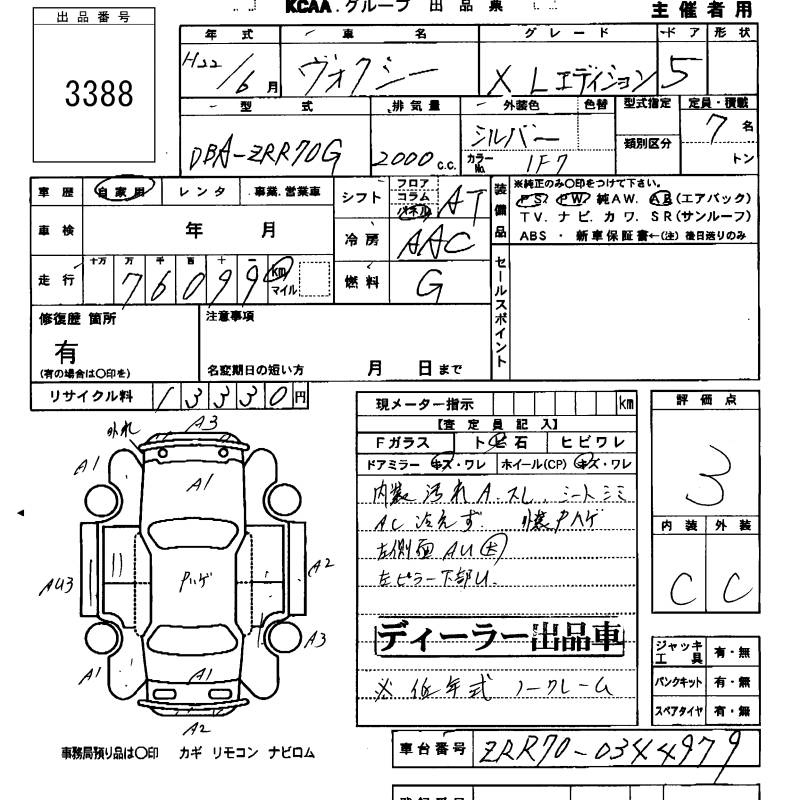 KCAA.グループ 出品票
主催者用
出品番号
3388
年式 車名 グレード ドア 形状
H22/6月 ヴォクシー X Lエディション 5
型式 排気量 外装色 色替 型式指定 定員・積載
DBA-ZRR70G 2000c.c. シルバー 類別区分 7名
カラーNo. 1F7 トン
車歴 自家用 レンタ 事業.営業車
シフト フロア コラム パネル AT
車検 年 月
冷房 AAC
走行 十万 万 千 百 十 一
76099 km マイル
燃料 G
装備品
※純正のみ〇印をつけて下さい。
PS. PW. 純AW. AB(エアバック)
TV. ナビ. カワ. SR(サンルーフ)
ABS ・ 新車保証書←(注)後日送りのみ
セールスポイント
修復歴 箇所
有
(有の場合は〇印を)
注意事項
名変期日の短い方 月 日まで
リサイクル料 13330円
現メーター指示 km
【査定員記入】
Fガラス ト 石 ヒビワレ
ドアミラー キズ・ワレ ホイール(CP) キズ・ワレ
内装 汚れ A.スレ シートシミ
AC 冷えず 外装Pハゲ
左側面 AU 大
左ピラー下部U.
ディーラー出品車
※ 低年式 ノークレーム
評価点
3
内装 外装
C C
ジャッキ工具 有・無
パンクキット 有・無
スペアタイヤ 有・無
外れ
A3
A1
A1
AU3
Pハゲ
A2
A1
A1
A3
A2
事務局預り品は〇印 カギ リモコン ナビロム
車台番号 ZRR70-0344979